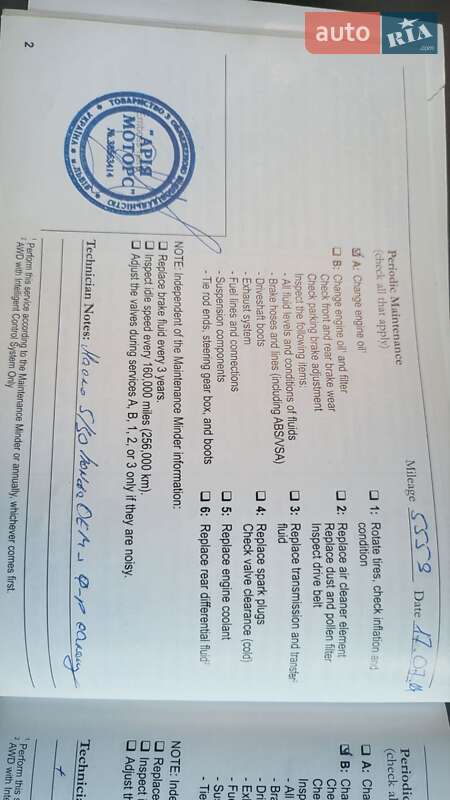 auto RIA .com
Periodic Maintenance
(check all that apply)
Mileage 5553 Date
A: Change engine oil¹
B: Change engine oil¹ and filter
Check front and rear brake wear
Check parking brake adjustment
Inspect the following items:
- All fluid levels and conditions of fluids
- Brake hoses and lines (including ABS/VSA)
- Driveshaft boots
- Exhaust system
- Fuel lines and connections
- Suspension components
- Tie rod ends, steering gear box, and boots
1: Rotate tires, check inflation and
condition
2: Replace air cleaner element
Replace dust and pollen filter
Inspect drive belt
3: Replace transmission and transfer²
fluid
4: Replace spark plugs
Check valve clearance (cold)
5: Replace engine coolant
6: Replace rear differential fluid²
NOTE: Independent of the Maintenance Minder information:
Replace brake fluid every 3 years.
Inspect idle speed every 160,000 miles (256,000 km).
Adjust the valves during services A, B, 1, 2, or 3 only if they are noisy.
Technician Notes:
¹ Perform this service according to the Maintenance Minder or annually, whichever comes first.
² AWD with Intelligent Control System Only
2
ТОВАРИСТВО З ОБМЕЖЕНОЮ ВІДПОВІДАЛЬНІСТЮ
УКРАЇНА
"АРІЯ
МОТОРС"
Periodic
(check a
A: Cha
B: Cha
Che
Che
Insp
- All
- Bra
- Dri
- Exh
- Fue
- Sus
- Tie
NOTE: Inde
Replace
Inspect i
Adjust th
Technici
¹ Perform this s
² AWD with Inte